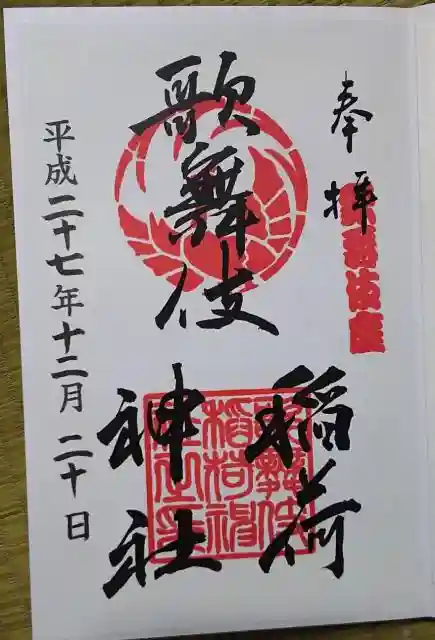 奉拝
歌舞伎座
歌舞伎
稲荷
神社
歌舞伎稲荷神社之印
平成二十七年十二月二十日